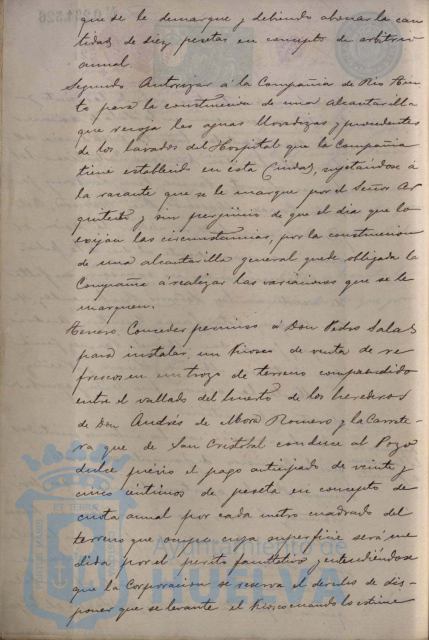 que se le demarque y debiendo abonar la can-
tidad de diez pesetas en concepto de arbitrio
anual.
Segundo Autorizar á la Compañia de Rio Tin-
to para la construccion de una alcantarilla
que recoja las aguas llovedizas y procedentes
de los lavados del Hospital que la Compañia
tiene establecido en esta Ciudad, sujetandose á
la rasante que se le marque por el Señor Ar-
quitecto y sin perjuicio de que el dia que lo
exijan las circunstancias, por la construccion
de una alcantarilla general quede obligada la
Compañia á realizar las variaciones que se le
marquen.
Tercero. Conceder permiso á Don Pedro Salas
para instalar un kiosco de venta de re-
frescos en un trozo de terreno comprendido
entre el vallado del huerto de los herederos
de Don Andrés de Mora Romero y la Carrete-
ra que de San Cristobal conduce al Pozo
dulce previo el pago anticipado de veinte y
cinco centimos de peseta en concepto de
cuota anual por cada metro cuadrado del
terreno que ocupe cuya superficie será me-
dida por el perito facultativo y entendiendose
que la Corporacion se reserva el derecho de dis-
poner que se levante el kiosco cuando lo estime
Ayuntamiento de
HUELVA